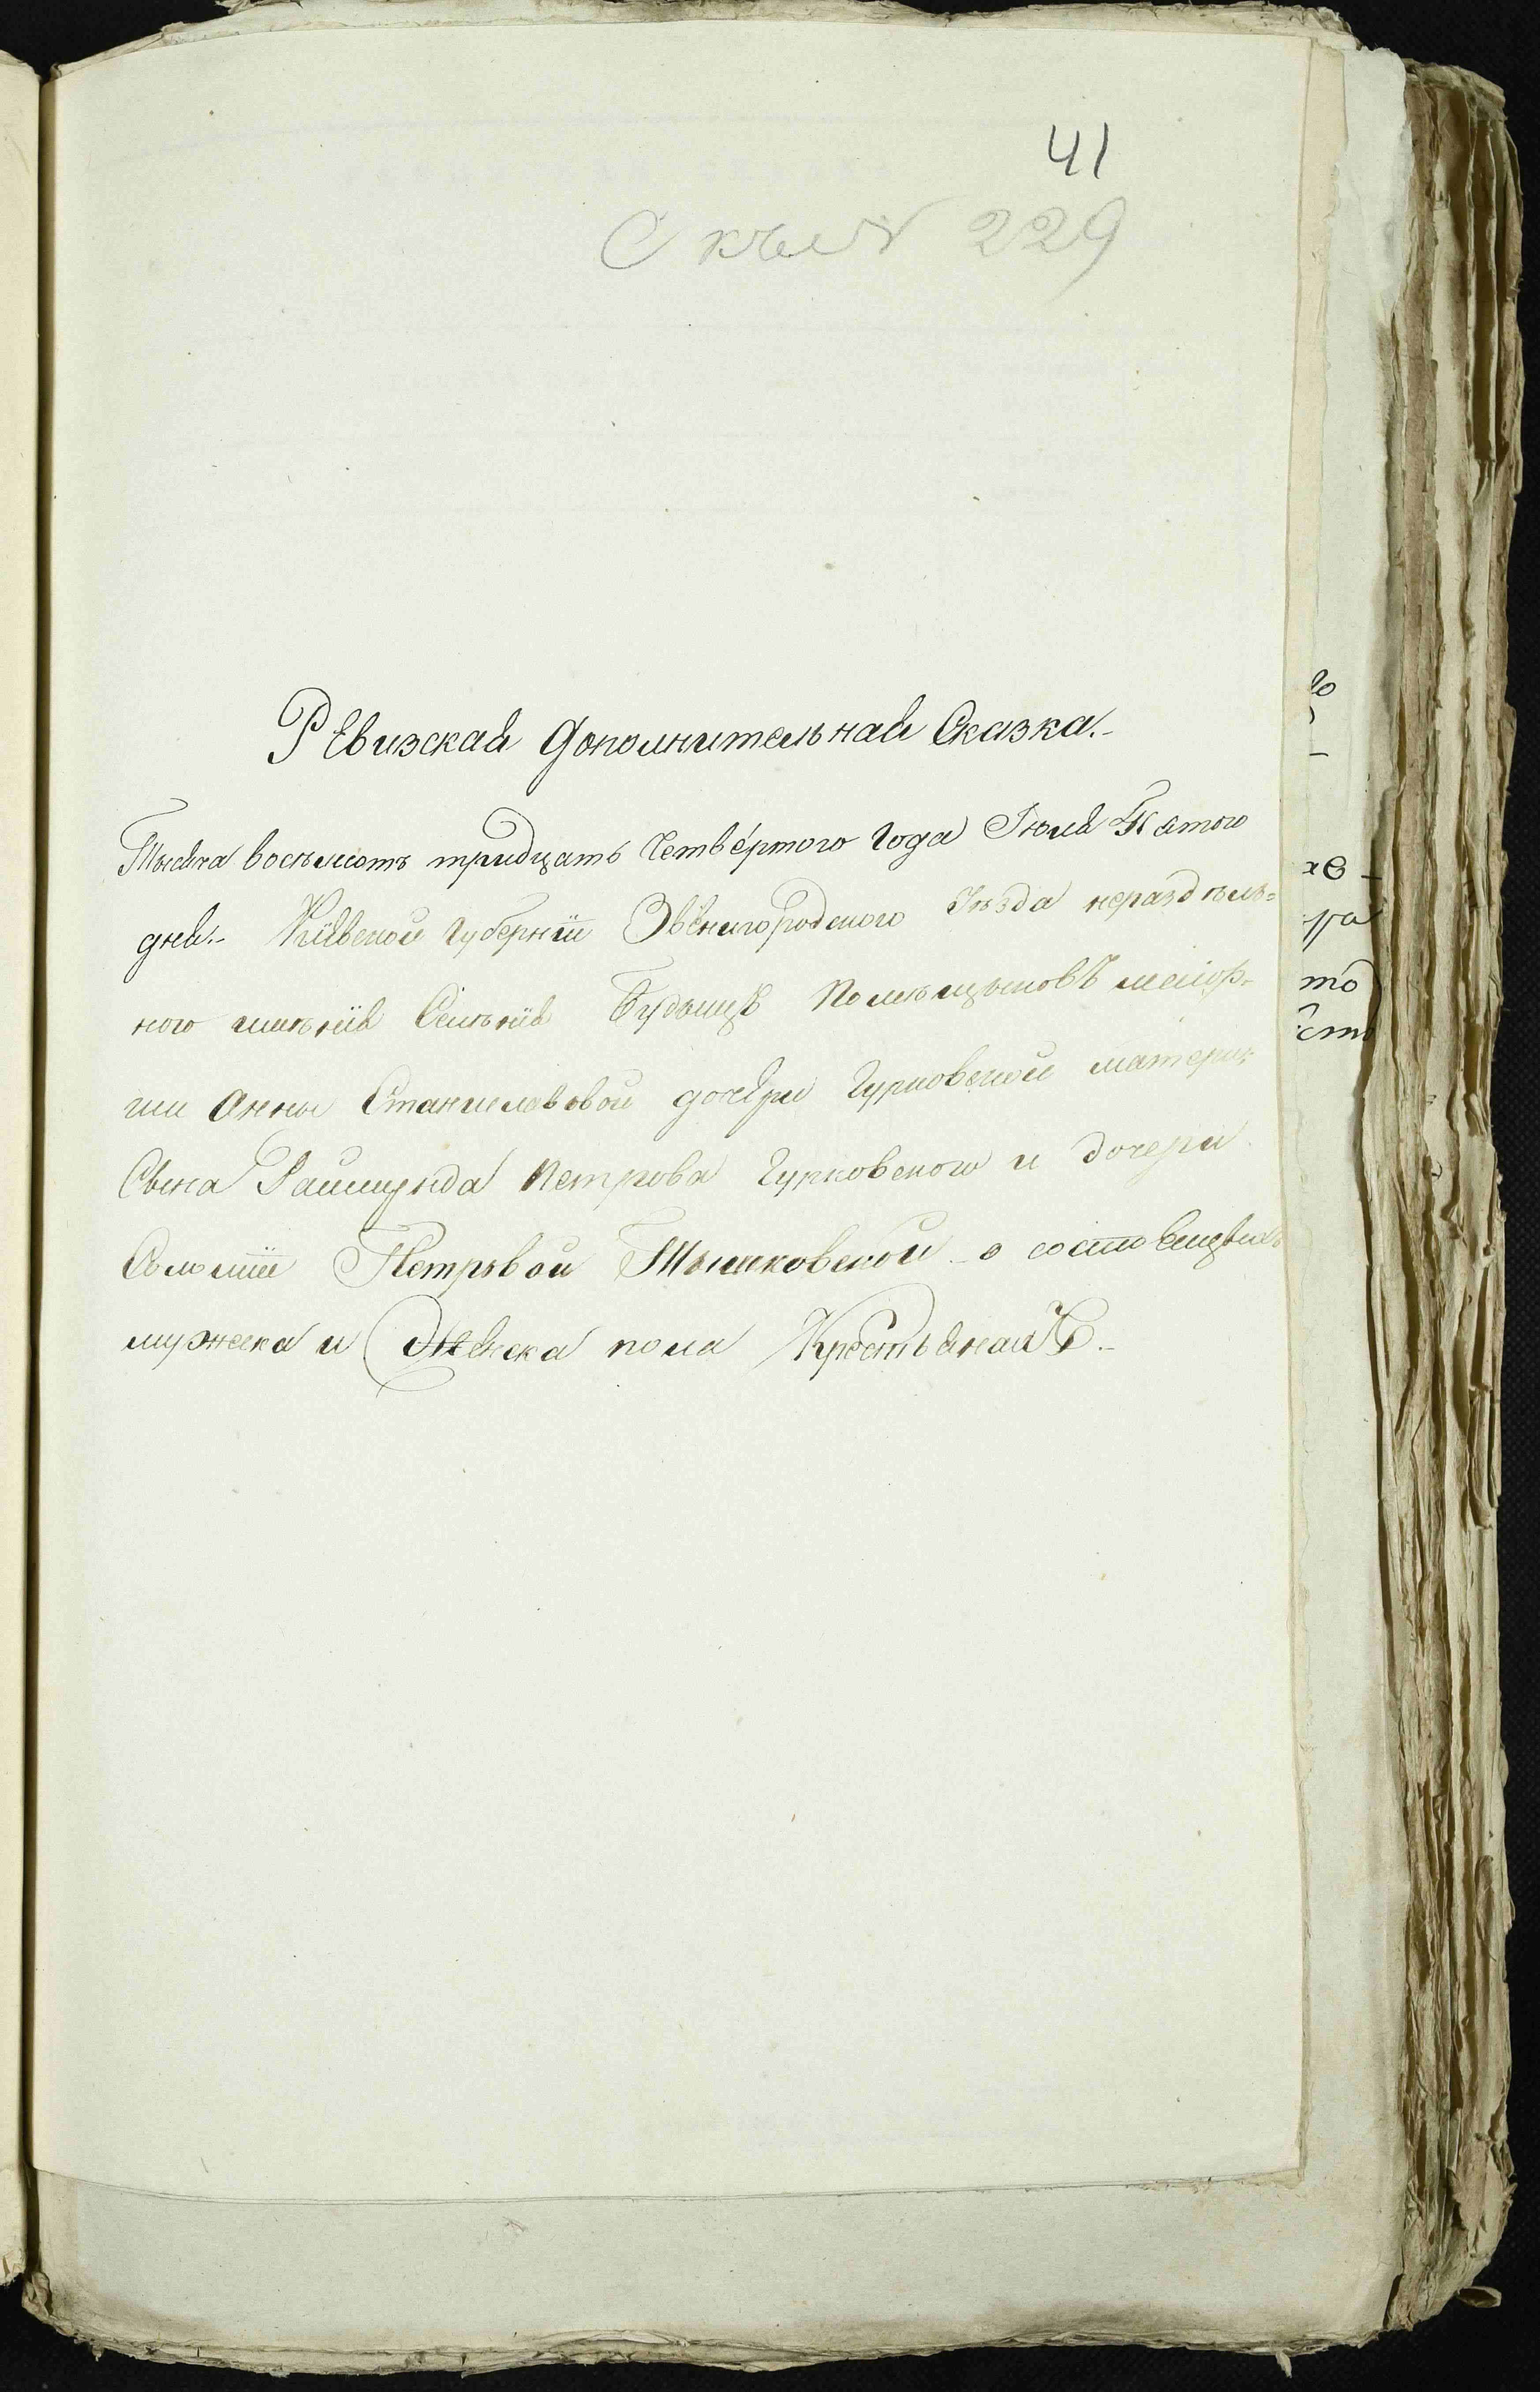 41
С къ № 229
Ревизская Дополнительная Сказка.-
Тысяча восемьсотъ тридцать Четвертого Года Іюля Пятого
дня.- Кіевской Губерніи Звенигородского Уѣзда нераздѣль=
ного имѣнія Селѣнія Будищъ Помѣщиковъ маіор-
ши Анны Станиславовой дочери Гурковской матери,
Сына Раймунда Петрова Гурковского и дочери
Соломіи Петровой Тышковской о состоящихъ
мужеска и Женска пола Крестьянахъ.-
то